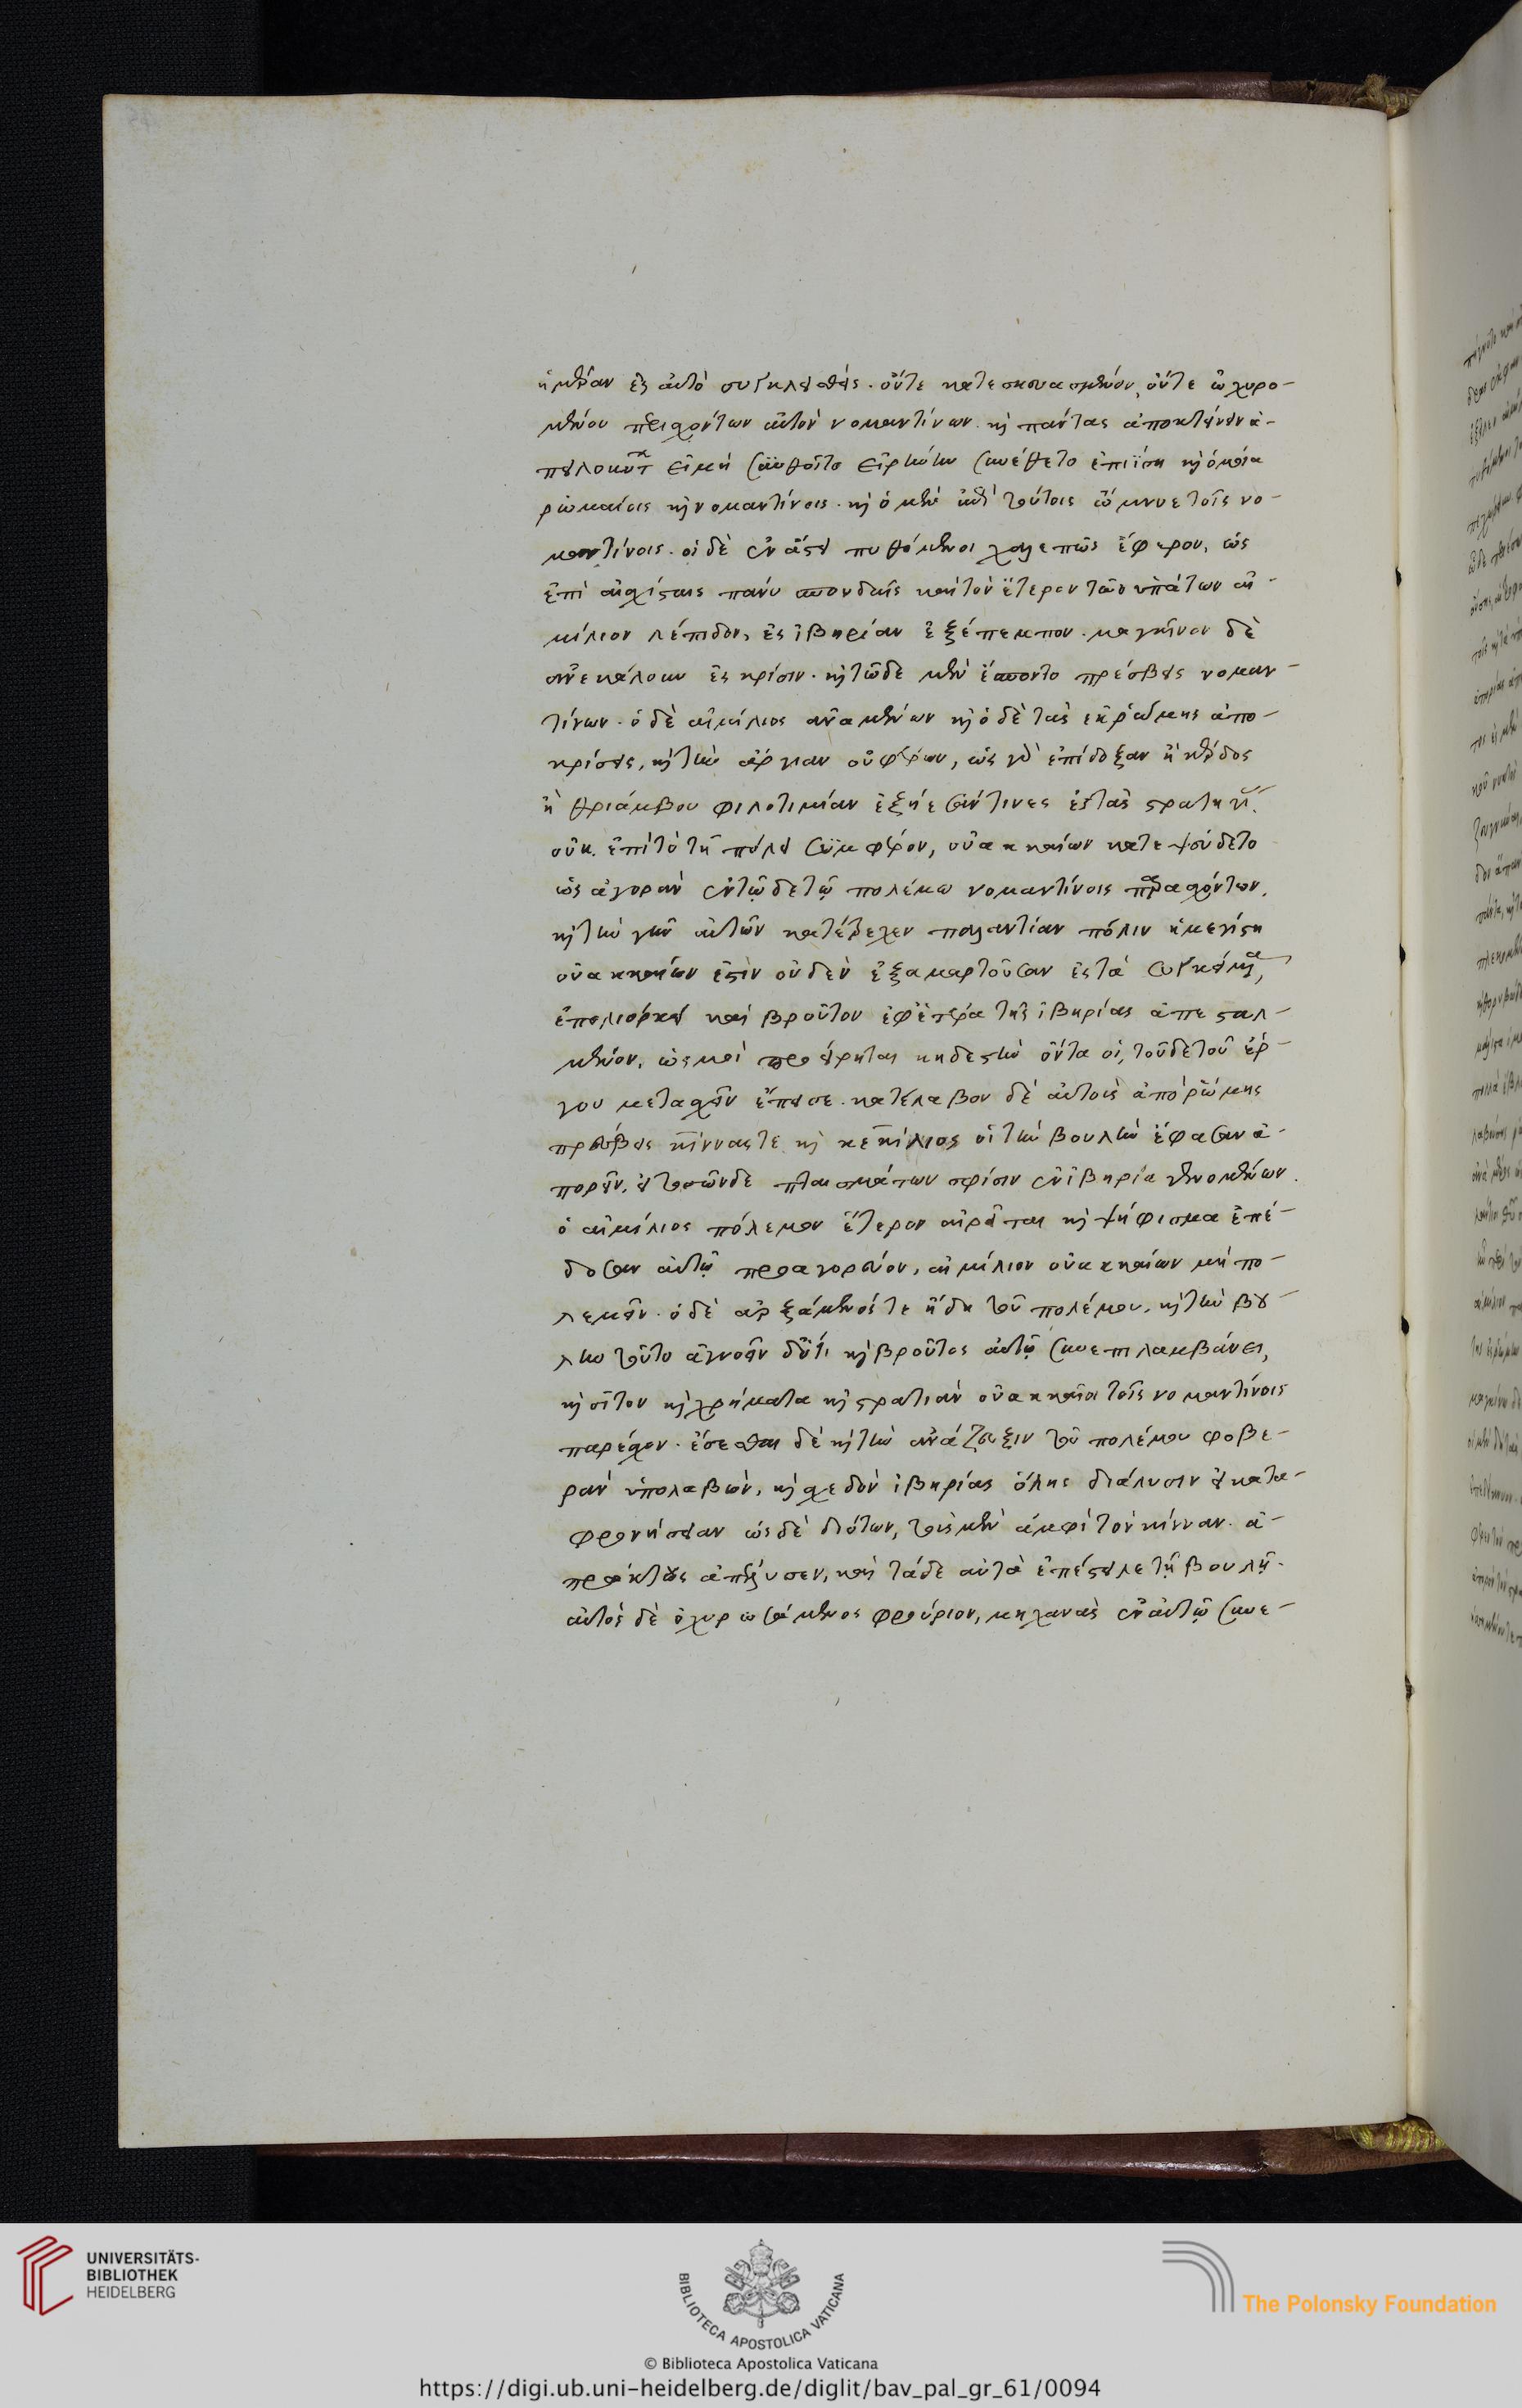 ἡμέραν ἐς αὐτὸ συγκλεισθεὶς. οὔτε κατεσκευασμένον, οὔτε ὠχυρο-
μένον περισχόντων αὐτὸν νομαντίνων. καὶ πάντας ἀποκτείνειν ἀ-
πειλούντων εἰ μὴ σύνθοιτο εἰρήνην συνέθετο ἐπιΐση καὶ ὁμοία
ῥωμαίοις καὶ νομαντίνοις. καὶ ὁ μὲν ἐπὶ τούτοις ὤμνυε τοῖς νο-
μαντίνοις. οἱ δὲ ἐν ἄστει πυθόμενοι χαλεπῶς ἔφερον, ὡς
ἐπὶ αἰσχίσταις πάνυ σπονδαῖς καὶ τὸν ἕτερον τῶν ὑπάτων αἰ-
μίλιον λέπιδον, ἐς ἰβηρίαν ἐξέπεμπον. μαγκῖνον δὲ
ἀνεκάλουν ἐς κρίσιν. καὶ τῶδε μὲν ἕσποντο πρέσβεις νομαν-
τίνων. ὁ δὲ αἰμίλιος ἀναμένων καὶ ὁ δὲ τὰς ἐκ ῥώμης ἀπο-
κρίσεις, καὶ τὴν ἀργίαν οὐ φέρων, ὡς γὰρ ἐπίδοξαν ἢ κέρδος
ἢ θριάμβου φιλοτιμίαν ἐξήεσάν τινες ἐς τὰς στρατηγίας.
οὐκ. ἐπὶ τὸ τῆ πόλει συμφέρον, οὐακκαίων κατεψεύδετο
ὡς ἀγορὰν ἐν τῷδε τῷ πολέμω νομαντίνοις παρασχόντων.
καὶ τὴν γῆν αὐτῶν κατέτρεχεν παλαντίαν πόλιν ἡ μεγίστη
οὐακκαίων ἐστὶν οὐδὲν ἐξαμαρτοῦσαν ἐς τὰ συγκείμενα,
ἐπολιόρκει καὶ βροῦτον ἐφ' ἕτερα τῆς ἰβηρίας ἀπεσταλ-
μένον, ὡς μοὶ προείρηται κηδεστὴν ὄντα οἱ, τοῦδε τοῦ ἔρ-
γου μετασχεῖν ἔπεισε. κατέλαβον δὲ αὐτοὺς ἀπὸ ῥώμης
πρέσβεις κίννας τε καὶ κεκίλιος οἳ τὴν βουλὴν ἔφασαν ἀ-
πορεῖν, εἰ τοσῶνδε πταισμάτων σφίσιν ἐν ἰβηρία γενομένων.
ὁ αἰμίλιος πόλεμον ἕτερον αἱρεῖται καὶ ψήφισμα ἐπέ-
δοσαν αὐτῷ προαγορεῦον, αἰμίλιον οὐακκαίων μὴ πο-
λεμεῖν. ὁ δὲ ἀρξάμενός τε ἤδη τοῦ πολέμου, καὶ τὴν βου-
λὴν τοῦτο ἀγνοεῖν ὅτι καὶ βροῦτος αὐτῷ συνεπιλαμβάνει,
καὶ σῖτον καὶ χρήματα καὶ στρατιὰν οὐακκαῖοι τοῖς νομαντίνοις
παρέχον. ἔσεσθαι δὲ καὶ τὴν ἀνάζευξιν τοῦ πολέμου φοβε-
ρὰν ὑπολαβὼν, καὶ σχεδὸν ἰβηρίας ὅλης διάλυσιν εἰ κατα-
φρονήσειαν ὡς δὲ διότων, τοὺς μὲν ἀμφὶ τὸν κίνναν. ἀ-
πράκτους ἀπέλυσεν, καὶ τάδε αὐτὰ ἐπέστειλε τῇ βουλῇ.
αὐτὸς δὲ ὀχυρωσάμενος φρούριον, μηχανὰς ἐν αὐτῷ συνε-
UNIVERSITÄTS-
BIBLIOTHEK
HEIDELBERG
BIBLIOTECA APOSTOLICA VATICANA
The Polonsky Foundation
© Biblioteca Apostolica Vaticana
https://digi.ub.uni-heidelberg.de/diglit/bav_pal_gr_61/0094